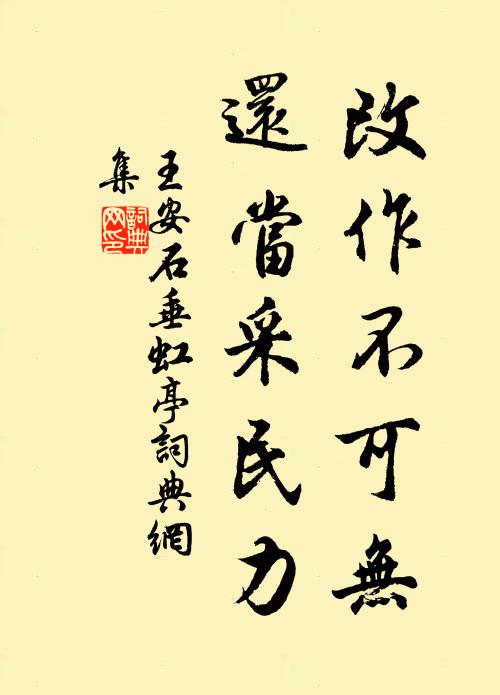 改作不可無
還當采民力
王安石垂虹亭詞典網
集
詞典網印